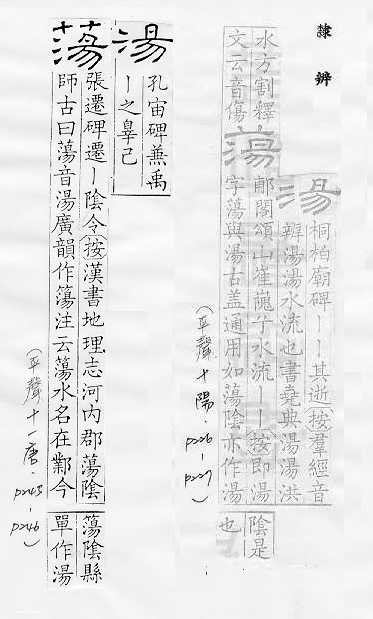 隸辨
湯
桐柏廟碑丨丨其逝按羣經音
辨湯湯水流也書堯典湯湯洪
水方割釋
文云音傷
蕩
郙閣頌山崔巍兮水流丨丨按即湯
字蕩與湯古盖通用如蕩陰亦作湯
陰是
也
(平聲十陽．p226-p227)
湯
孔宙碑兼禹
丨之辠己
蕩
張遷碑遷丨陰令按漢書地理志河內郡蕩陰
師古曰蕩音湯廣韻作簜注云蕩水名在鄴今
簜陰縣
單作湯
(平聲十一唐．p245-p246)